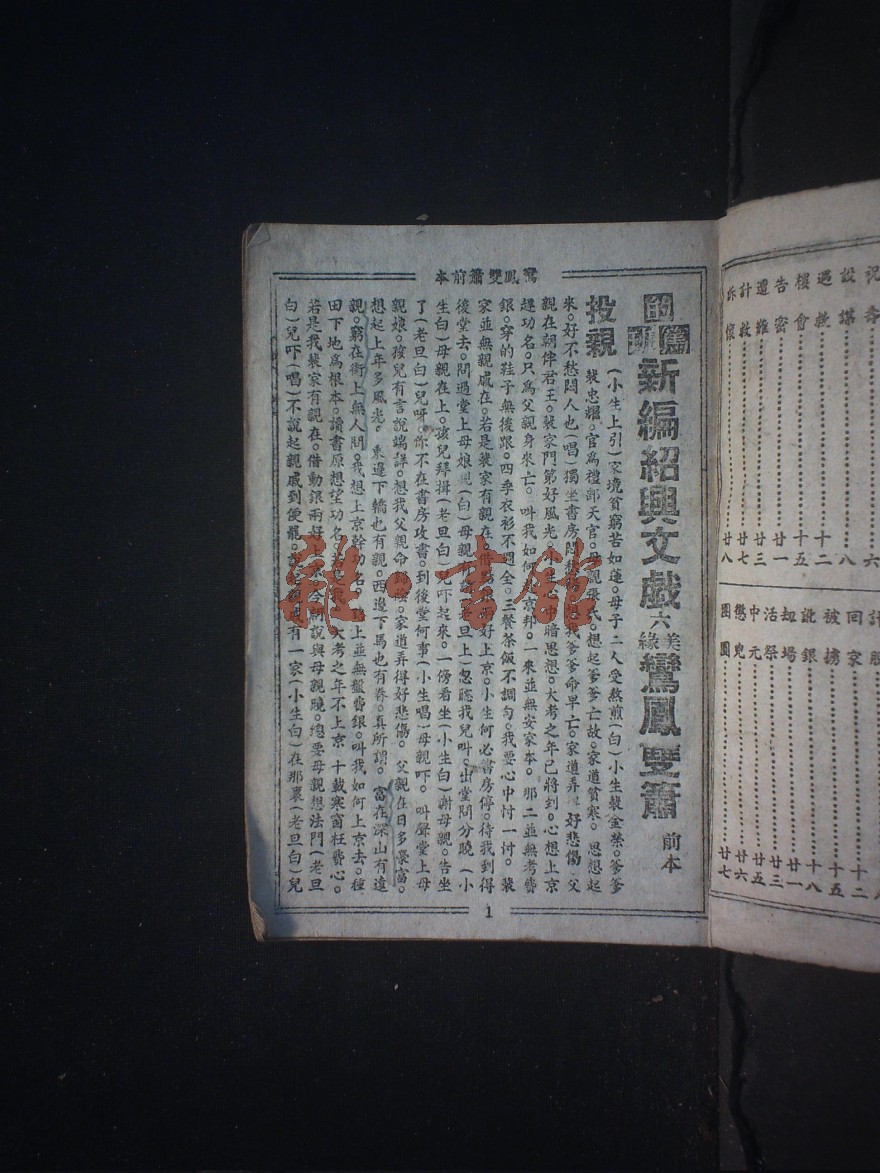 鸞鳳雙簫前本
新編紹興文戲
六美緣
鸞鳳雙簫
前本
投親
(小生上引)家境貧窮苦如蓮。母子二人受熬煎(白)小生裴金榮。爹爹
裴忠耀。官爲禮部天官。母親張氏。想起爹爹亡故。家道貧寒。思想起
來。好不愁悶人也(唱)獨坐書房悶愁。想我爹爹命早亡。家道弄好悲傷。父
親在朝伴君王。裴家門第好風光。小生心中暗思想。大考之年已將到。心想上京
趕功名。只爲父親身來亡。叫我如何京邦。一來並無安家本。那二並無考費
銀。穿的鞋子無後跟。四季衣衫不週全。三餐茶飯不調勻。我要心中忖一忖。裴
家並無親戚在。若是裴家有親在。借好上京。小生何必書房停。待我到得
後堂去。問過堂上母娘(白)母親(老旦上)忽聽我兒叫。出堂問分曉(小
生白)母親在上。孩兒拜揖(老旦白)兒吓起來。一傍看坐(小生白)謝母親。告坐
了(老旦白)兒呀。你不在書房攻書。到後堂何事(小生唱)母親吓。叫聲堂上母
親娘。孩兒有言說端詳。想我父親命歸陰。家道弄得好悲傷。父親在日多豪富。
想起上年多風光。東邊下轎也有親。西邊下馬也有眷。真所謂。富在深山有遠
親。窮在街上無人問。我想上京幹功名。路上並無盤費銀。叫我如何上京去。種
田下地爲根本。讀書原想望功名。若是大考之年不上京。十載寒窗枉費心。
若是我裴家有親在。借動銀兩好上京。今朝說與母親曉。總要母親想法門(老旦
白)兒吓(唱)不說起親戚到便罷。親戚有一家(小生白)在那裏(老旦白)兒
1
祝壽 六
設謀 八
過救 十二
樓會 十五
告密 廿一
遭難 廿三
計救 廿七
訴懷 廿八
回家 十二
被擄 十五
訛銀 十八
却場 廿一
活祭 廿三
中元 廿五
懲兒 廿六
團圓 廿七
雅·書館